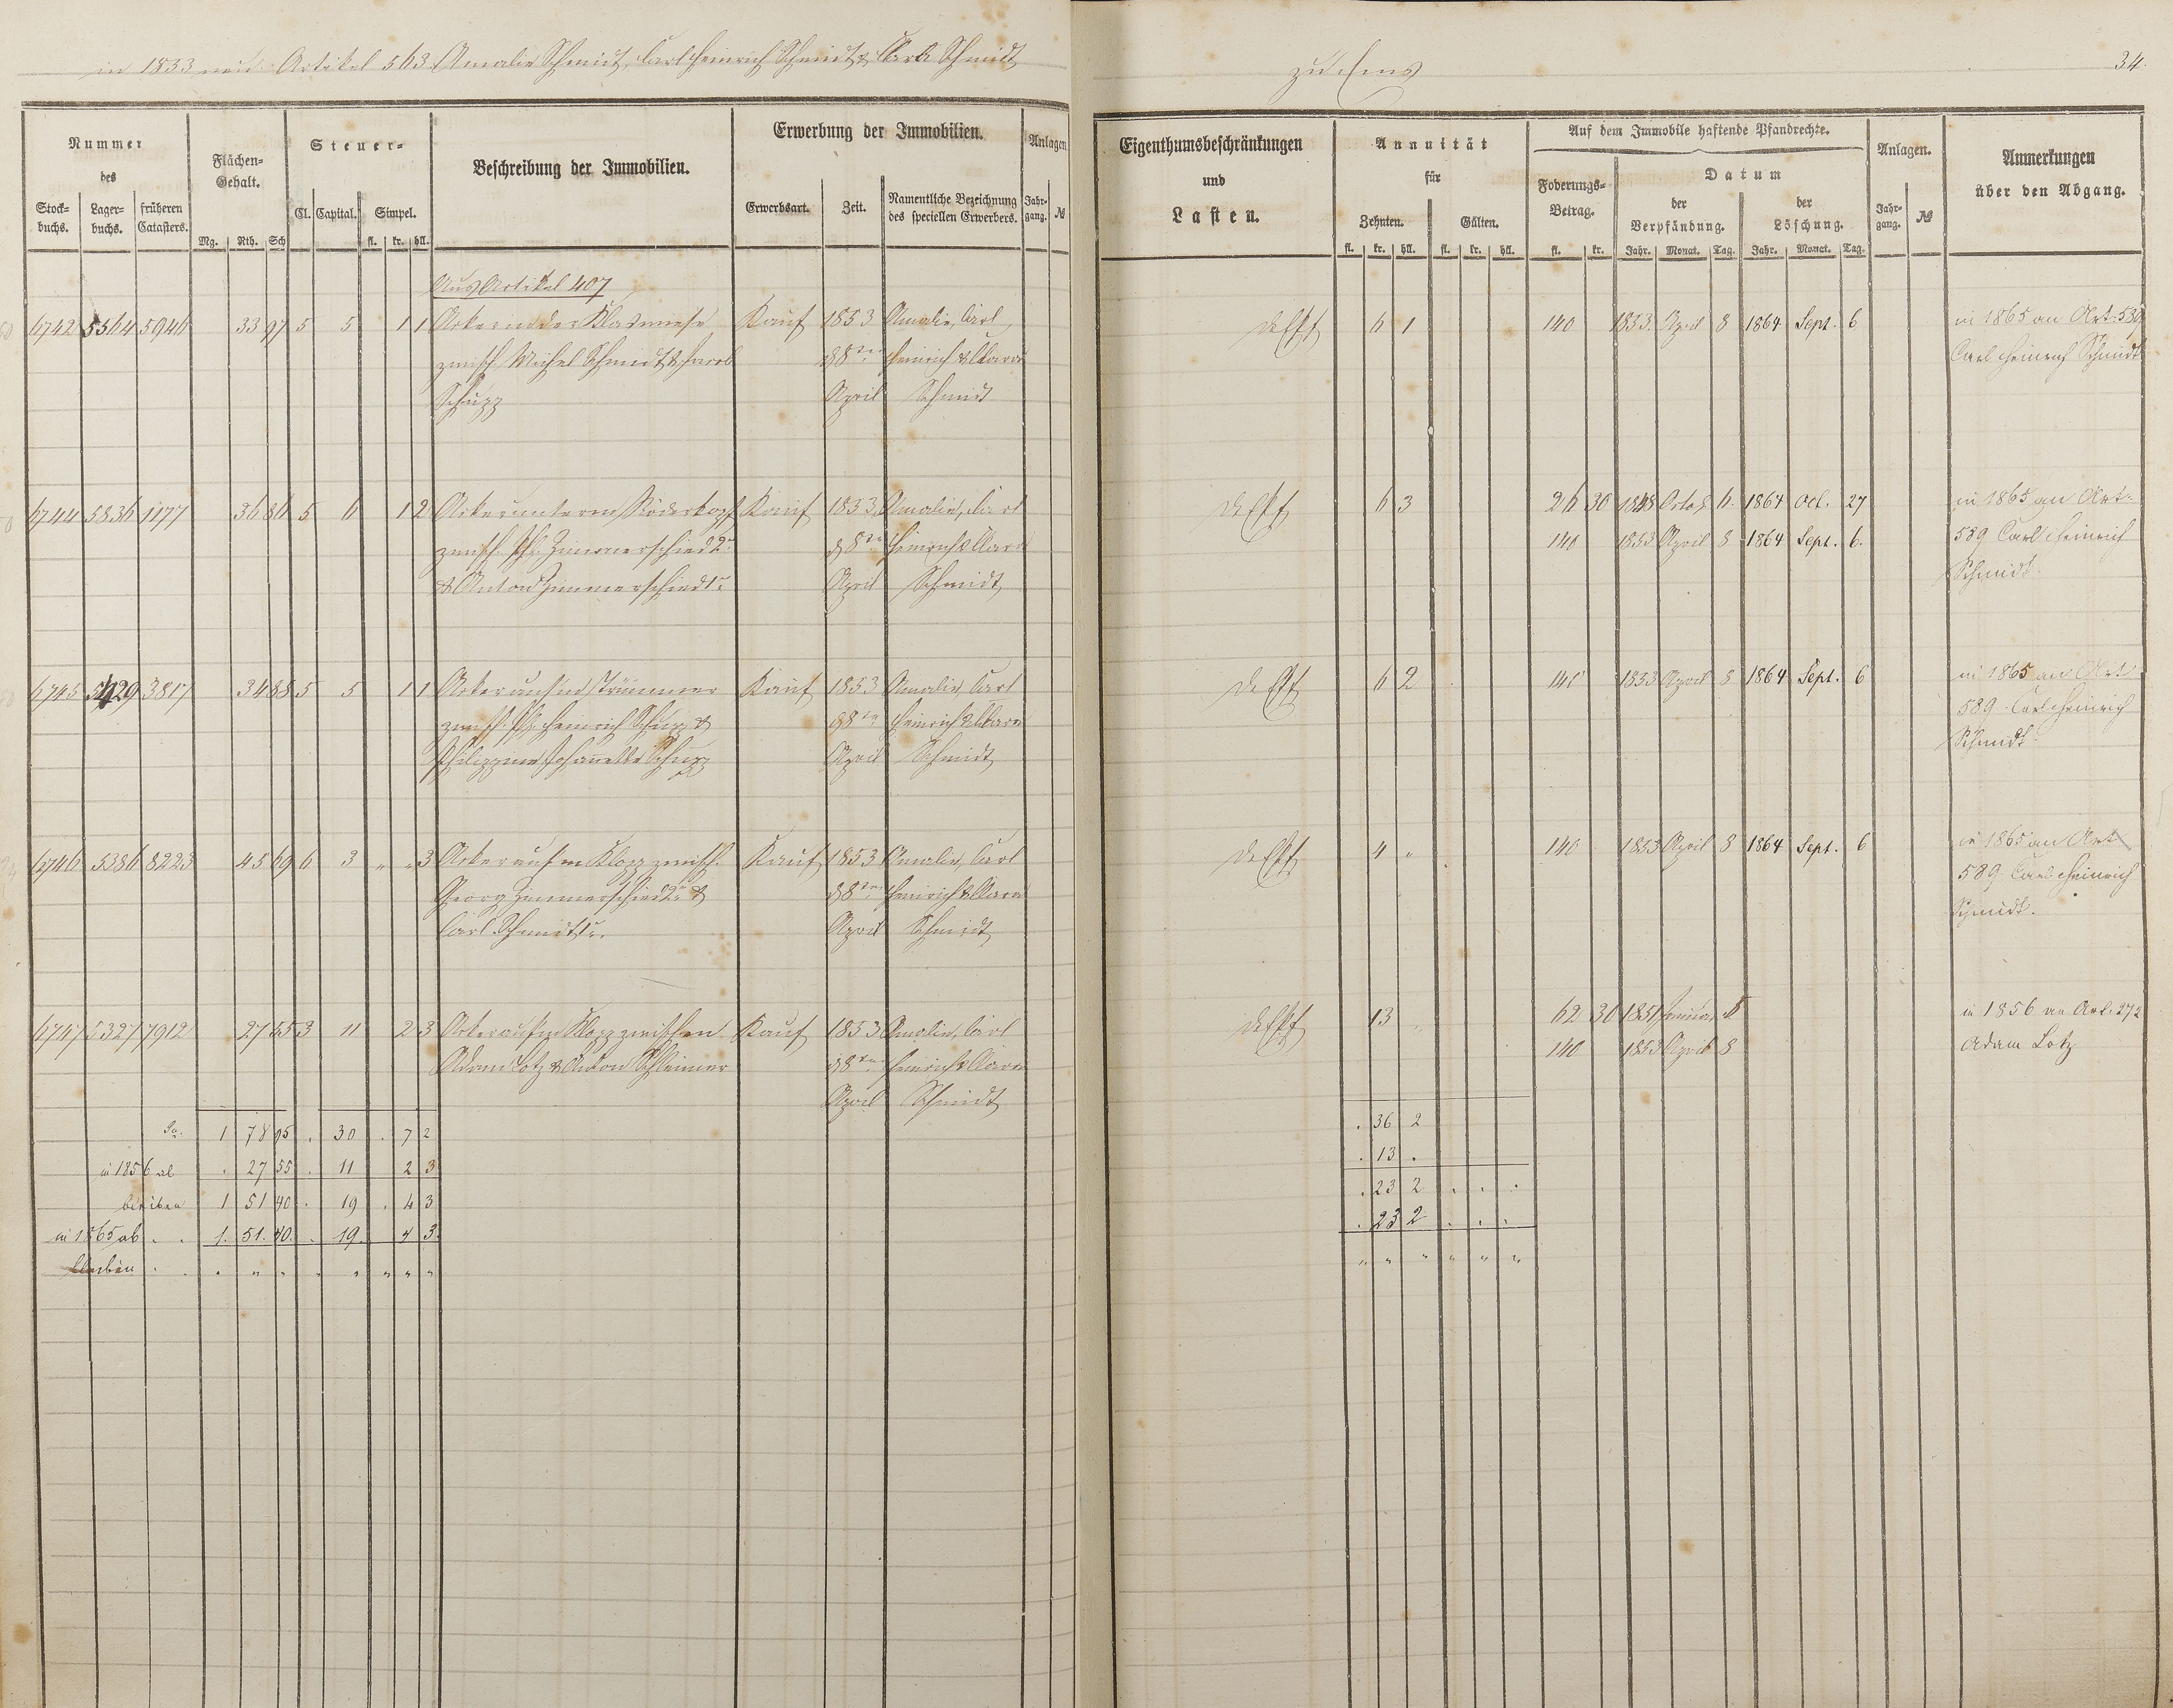 in 1853 neu Artikel 563 Amalie Schmidt, Carl Heinrich Schmidt & Clara Schmidt
zu Ems
34.
Nummer
des
Stock-
buchs.
Lager-
buchs.
früheren
Catasters.
Flächen-
Gehalt.
Mg. Rth. Sch
Steuer-
Cl. Capital. Simpel.
fl. kr. hll.
Beschreibung der Immobilien.
Erwerbung der Immobilien.
Erwerbsart. Zeit.
Namentliche Bezeichnung
des speciellen Erwerbers.
Anlagen
Jahr-
gang. №
Eigenthumsbeschränkungen
und
Lasten.
Annuität
für
Zehnten. Gülten.
fl. kr. hll. fl. kr. hll.
Auf dem Immobile haftende Pfandrechte.
Foderungs-
Betrag.
fl. kr.
Datum
der
Verpfändung.
der
Löschung.
Jahr. Monat. Tag. Jahr. Monat. Tag.
Anlagen.
Jahr-
gang. №
Anmerkungen
über den Abgang.
Aus Artikel 407
6742 5564 5946 33 97 5 5 1 1 Acker in der Kaswiese Kauf 1853 Amalie, Carl 6 1 140 1853 April 8 1864 Sept. 6 in 1865 an Art. 589
zwisch. Michel Schmidt & Jacob d 8ten Heinrich & Clara Carl Heinrich Schmidt
Schupp April Schmidt
6744 5836 1177 36 86 5 6 1 2 Acker unterm Röderkopf Kauf 1853 Amalie, Carl 6 3 26 30 1848 6. 1864 Oct. 27 in 1865 an Art.
zwisch. Ph. Zimmerschied 2r d 8ten Heinrich & Clara 140 1853 April 8 1864 Sept. 6. 589 Carl Heinrich
& Anton Zimmerschied 1r April Schmidt Schmidt.
6745 5429 3817 34 88 5 5 1 1 Acker auf'm Trümmer Kauf 1853 Amalie, Carl 6 2 140 1853 April 8 1864 Sept. 6 in 1865 an Art.
zwisch. Ph. Heinrich Schupp & d 8ten Heinrich & Clara 589 Carl Heinrich
Philippine Johannette Schupp April Schmidt Schmidt.
6746 5386 8223 45 69 6 3 " " 3 Acker auf'm Klopp zwisch. Kauf 1853 Amalie, Carl 4 " 140 1853 April 8 1864 Sept. 6 in 1865 an Art.
Georg Zimmerschied 2r & d 8ten Heinrich & Clara 589 Carl Heinrich
Carl Schmidt 1r. April Schmidt Schmidt.
6747 5327 7912 27 55 3 11 2 3 Acker auf'm Klopp zwischen Kauf 1853 Amalie, Carl 13 " 62 30 1851 Januar in 1856 an Art. 272
Adam Lotz & Anton Schleimer d 8ten Heinrich & Clara 140 1853 April 8 Adam Lotz
April Schmidt
Sa. 1 78 95 . 30 . 7 2 . 36 2
in 1856 ab . 27 55 . 11 2 3 . 13 .
bleiben 1 51 40 . 19 . 4 3 . 23 2 . . .
in 1865 ab . . 1. 51. 40. . 19. 4 3. . 23 2 . . .
bleiben . . . " " . " " " " " " " " " "